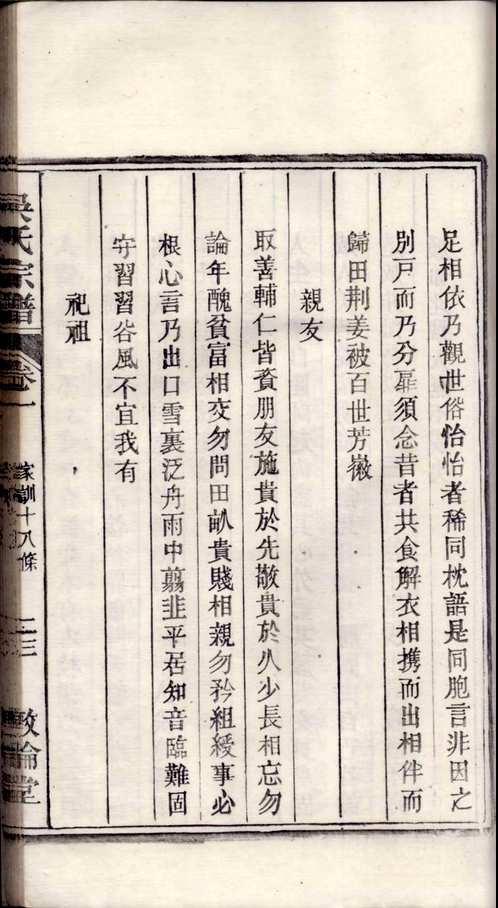 足相依乃觀世俗怡怡者稀同枕語是同胞言非因之
別戸而乃分扉須念昔者共食解衣相携而出相伴而
歸田荆姜被百世芳徽
親友
取善輔仁皆資朋友施貴於先敬貴於久少長相忘勿
論年醜貧富相交勿問田畝貴賤相親勿矜組綬事必
根心言乃出口雪裏泛舟雨中翦韭平居知音臨難固
守習習谷風不宜我有
祀祖
吳氏宗譜
卷一
家訓十八條
二三
敦倫堂